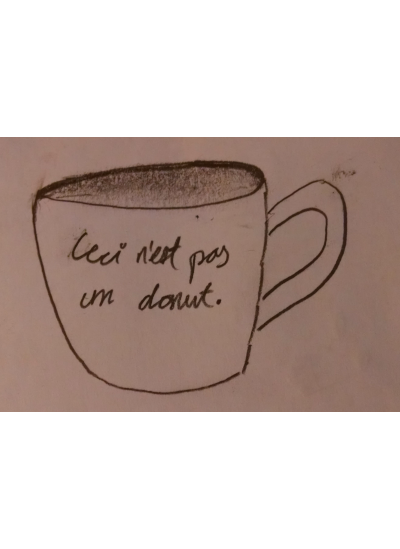 Ceci n'est pas
un donut.